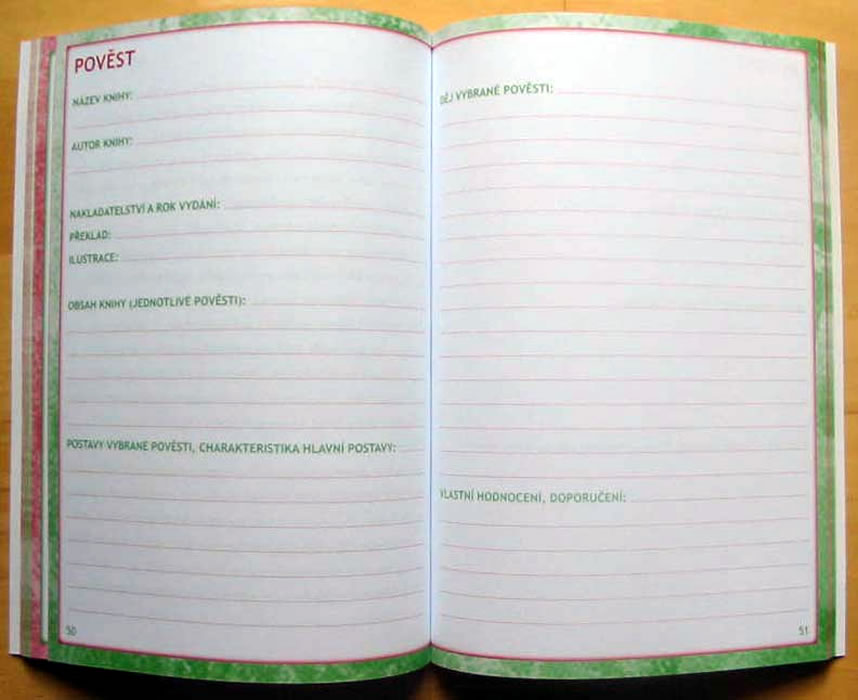 POVĚST
NÁZEV KNIHY:
AUTOR KNIHY:
NAKLADATELSTVÍ A ROK VYDÁNÍ:
PŘEKLAD:
ILUSTRACE:
OBSAH KNIHY (JEDNOTLIVÉ POVĚSTI):
POSTAVY VYBRANÉ POVĚSTI, CHARAKTERISTIKA HLAVNÍ POSTAVY:
50
DĚJ VYBRANÉ POVĚSTI:
VLASTNÍ HODNOCENÍ, DOPORUČENÍ:
51